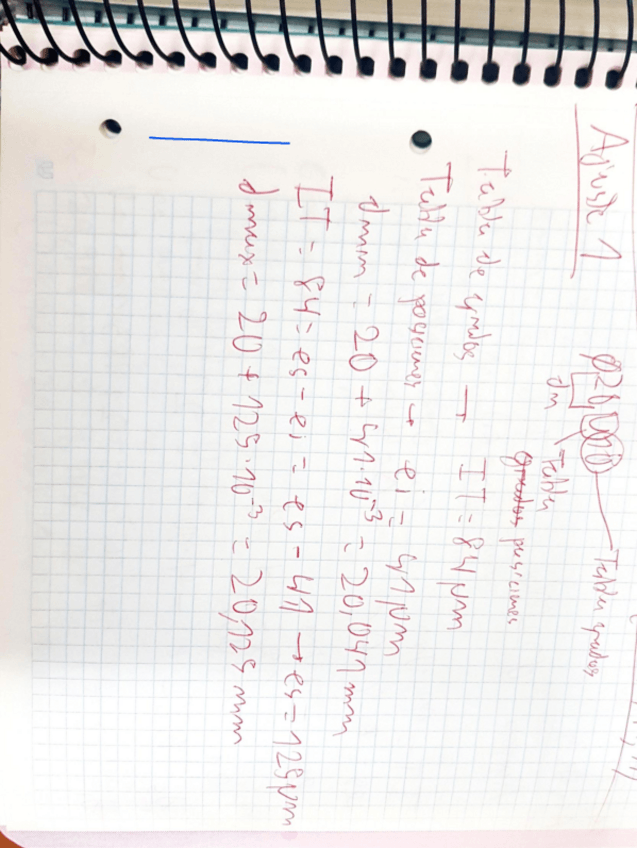 Ajuste 1
φ20 U10
dm Tabla Tabla grados
Grados posiciones
Tabla de grados → IT = 84 μm
Tabla de posiciones → ei = 41 μm
dmin = 20 + 41·10⁻³ = 20,041 mm
IT = 84 = es - ei = es - 41 → es = 125 μm
dmax = 20 + 125·10⁻³ = 20,125 mm